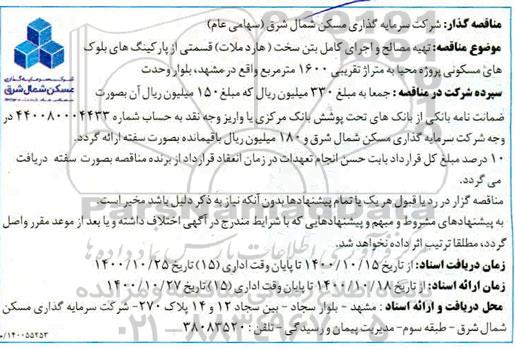 مناقصه گذار: شرکت سرمایه گذاری مسکن شمال شرق (سهامی عام)
موضوع مناقصه: تهیه مصالح و اجرای کامل بتن سخت (هارد ملات) قسمتی از پارکینگ های بلوک
های مسکونی پروژه محیا به متراژ تقریبی ۱۶۰۰ مترمربع واقع در مشهد، بلوار وحدت
سپرده شرکت در مناقصه: جمعا به مبلغ ۳۳۰ میلیون ریال که مبلغ ۱۵۰ میلیون ریال آن بصورت
ضمانت نامه بانکی از بانک های تحت پوشش بانک مرکزی یا واریز وجه نقد به حساب شماره ۴۴۰۰۸۰۰۰۴۴۳۳ در
وجه شرکت سرمایه گذاری مسکن شمال شرق و ۱۸۰ میلیون ریال باقیمانده بصورت سفته ارائه گردد.
۱۰ درصد مبلغ کل قرارداد بابت حسن انجام تعهدات در زمان انعقاد قرارداد از برنده مناقصه بصورت سفته دریافت
می گردد.
مناقصه گزار در رد یا قبول هر یک یا تمام پیشنهادها بدون آنکه نیاز به ذکر دلیل باشد مخیر است.
به پیشنهادهای مشروط و مبهم و پیشنهادهایی که با شرایط مندرج در آگهی اختلاف داشته و یا بعد از موعد مقرر واصل
گردد، مطلقا ترتیب اثر داده نخواهد شد.
زمان دریافت اسناد: از تاریخ ۱۴۰۰/۱۰/۱۵ تا پایان وقت اداری (۱۵) تاریخ ۱۴۰۰/۱۰/۲۵
زمان ارائه اسناد: از تاریخ ۱۴۰۰/۱۰/۱۸ تا پایان وقت اداری (۱۵) تاریخ ۱۴۰۰/۱۰/۲۷
محل دریافت و ارائه اسناد: مشهد - بلوار سجاد - بین سجاد ۱۲ و ۱۴ پلاک ۲۷۰- شرکت سرمایه گذاری مسکن
شمال شرق - طبقه سوم- مدیریت پیمان و رسیدگی - تلفن: ۳۸۰۸۳۵۲۰
شرکت سرمایه گذاری
مسکن شمال شرق
/۱۴۰۰۵۵۲۵۳
ParsNamadData
۰۲۱-۸۸۳۴۹۶۷۰-۵